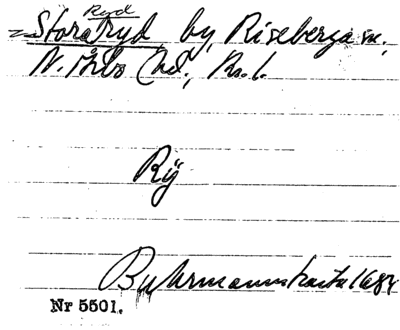 Ryd
Storaryd by, Riseberga sn,
N. Åsbo hd., Kr. l.
Rÿ
Buhrmannskarta 1684
Nr 5501.